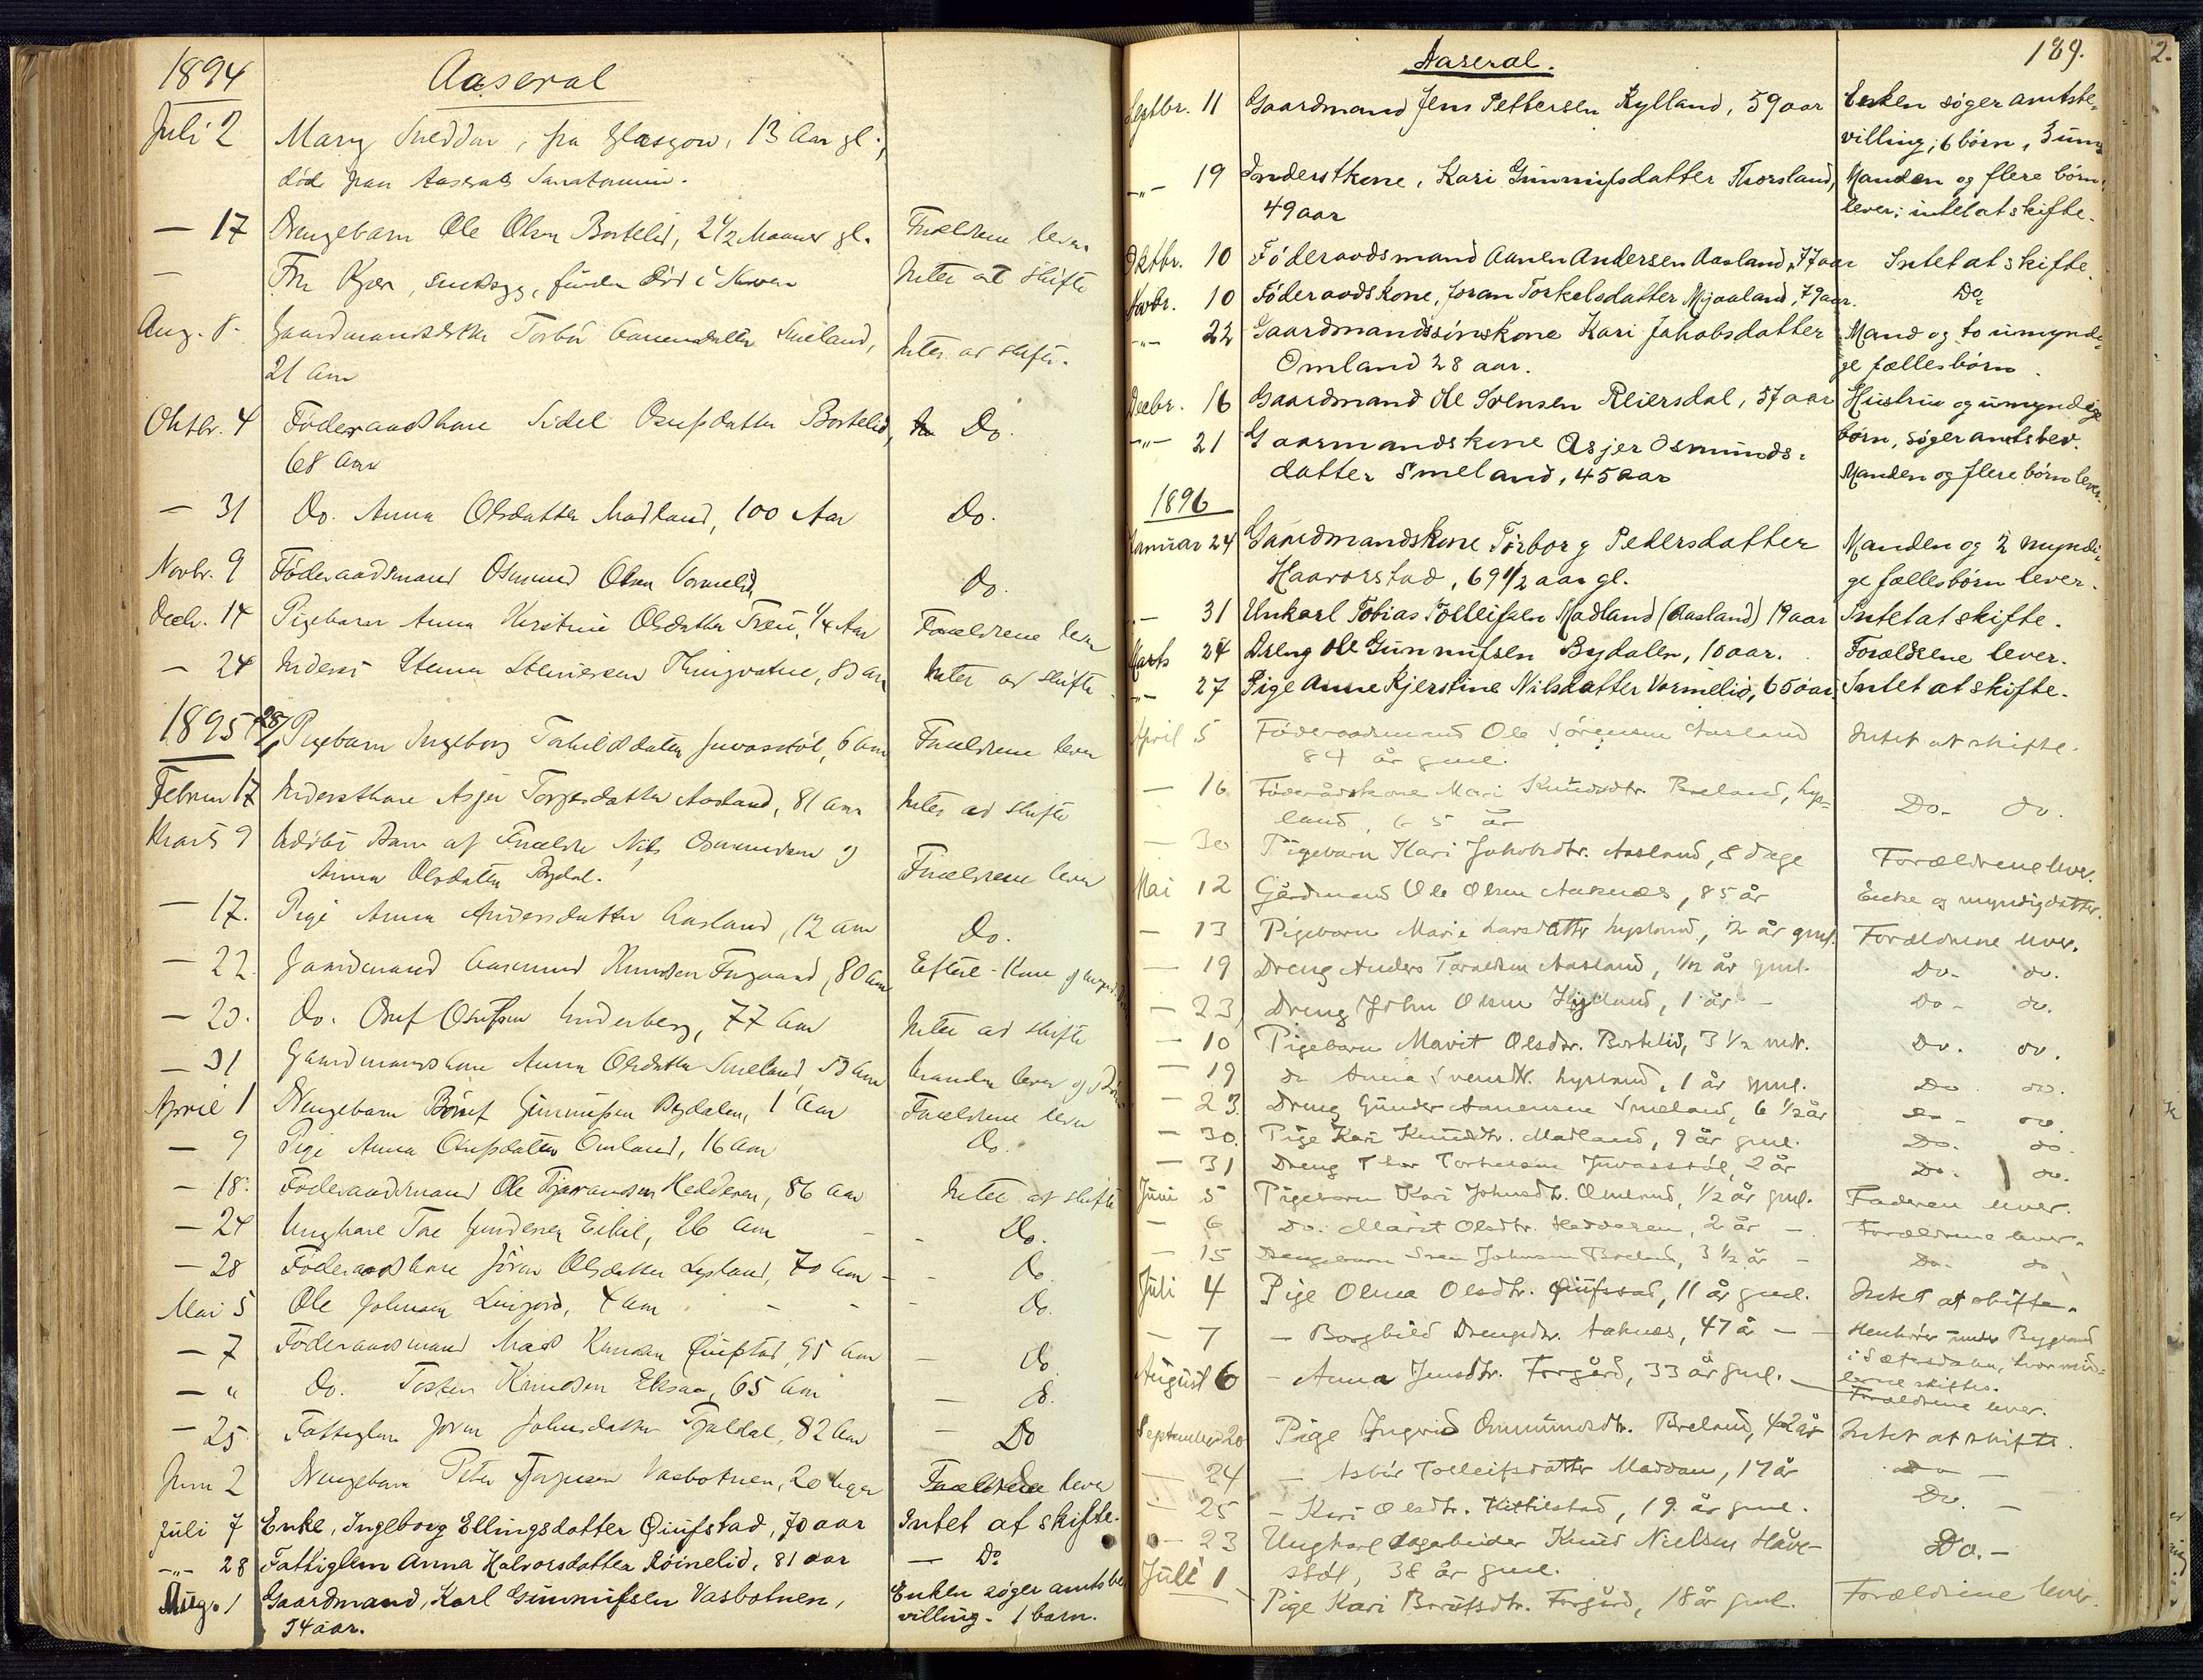 1894 Aaseral
Juli 2 Mary Sneddon, fra Glasgow, 13 Aar gl.,
død paa Aaserals Sanatorium.
— 17 Drengebarn Ole Olsen Bortelid, 2 1/2 Maaner gl. Forældrene lever
— Fru Kjær, sindssyg, funden død i Intet at skifte
Aug. 8 Gaardmandsdatter Torbor Aanensdatter Smeland, Intet at skifte.
21 Aar
Oktbr. 4 Føderaadskone Sidel Osufsdatter Bortelid, Do.
68 Aar
— 31 Do. Anna Olsdatter Madland, 100 Aar Do.
Novbr. 9 Føderaadsmand Osmund Olsen Vormelid Do.
Decbr. 14 Pigebarn Anna Kirstine Olsdatter 1/4 Aar Forældrene lever
— 24 Inderst Stener Stenersen Kringvatne, Intet at skifte
1895 28/1 Pigebarn Ingeborg Juvasstøl, 6 Aar Forældrene lever
Februar 17 Inderstkone Asjer Torjersdatter Aasland, 81 Aar Intet at skifte
Marts 9 Udøbt Barn af Forældre Nils Osmundsen og
Anna Olsdatter Bydal. Forældrene lever
— 17. Pige Anna Andersdatter Aasland, 12 Aar Do.
— 22. Gaardmand Aasmund Knudsen Forgaard, 80 Aar Efterl. Kone og
— 23. Do. Osuf Osufsen Underberg, 77 Aar Intet at skifte
— 31 Gaardmandskone Anna Olsdatter Smeland, Aar Manden lever og
April 1 Drengebarn Børuf Gunnufsen Bydalen, 1 Aar Forældrene lever
— 9 Pige Anna Osufsdatter Omland, 16 Aar Do.
— 18. Føderaadsmand Ole Tjøransen Hedderen, 86 Aar Intet at skifte
— 24 Ungkarl Tore Gundersen Eikil, 26 Aar — Do.
— 28 Føderaadskone Jøran Olsdatter Lysland, 70 Aar — Do.
Mai 5 Ole Johnsen Ljosgord, 4 Aar — Do.
— 7 Føderaadsmand Mads Knudsen Quifstad, 95 Aar — Do
— " Do. Tosten Knudsen Eksaa, 65 Aar — Do.
— 25 Fattiglem Jøran Johnsdatter Tjaldal, 82 Aar — Do
Juni 2 Drengebarn Peter Torjusen Vasbotnen, 20 Dager Forældrene lever
Juli 7 Enke, Ingeborg Ellingsdatter Quifstad, 70 aar Intet at skifte.
-„- 28 Fattiglem Anna Halvorsdatter Røinelid, 81 aar — Do
Aug. 1 Gaardmand, Karl Gunnufsen Vasbotnen, Enken søger amtsbe
34 aar. villing. 1 barn.
Aaseral. 189.
Septbr. 11 Gaardmand Jens Pettersen Kylland, 59 aar Enken søger amtsbe-
villing; 6 børn, 3 um
-„- 19 Inderstkone, Kari Gunnufsdatter Thorsland, Manden og flere børn
49 aar lever; intet at skifte.
Oktbr. 10 Føderaadsmand Aanen Andersen Aasland, 77 aar Intet at skifte.
Novbr. 10 Føderaadskone, Joran Torkelsdatter Mjaaland, 79 aar. Do
-„- 22 Gaardmandssønskone Kari Jakobsdatter Mand og to umyndi-
Omland 28 aar. ge fællesbørn.
Decbr. 16 Gaardmand Ole Svensen Reiersdal, 57 aar Hustru og umyndige
børn, søger amtsbev.
-„- 21 Gaarmandskone Asjer Osmunds-
datter Smeland, 45 aar Manden og flere børn lever.
1896
Januar 24 Gaardmandskone Torborg Pedersdatter Manden og 2 myndi-
Haavorstad, 69 1/2 aar gl. ge fællesbørn lever.
— 31 Unkarl Tobias Tolleifsen Madland (Aasland) 19 aar Intet at skifte.
Marts 24 Dreng Ole Gunnufsen Bydalen, 10 aar. Forældrene lever.
-„- 27 Pige Anne Kjerstine Nilsdatter Vormelid, 65 aar Intet at skifte.
April 5 Føderaadsmand Ole Sørensen Aasland Intet at skifte.
84 år gml.
— 16 Føderådskone Mari Knudsdtr. Breland, Lys- Do. do.
land, 65 år
— 30 Pigebarn Kari Jakobsdtr. Aasland, 8 dage Forældrene lever.
Mai 12 Gårdmand Ole Olsen Aaknæs, 85 år Enke og myndig datter.
— 13 Pigebarn Marie Larsdatter Lysland, 1/2 år gml. Forældrene lever.
— 19 Dreng Anders Taraldsen Aasland, 1/12 år gml. Do. do.
— 23 Dreng John Olsen Kylland, 1 år — Do. do.
— 10 Pigebarn Marit Olsdtr. Bortelid, 3 1/2 mdr. Do. do.
— 19 do Anna Svensdtr. Lysland, 1 år gml. Do do.
— 23. Dreng Gunder Aanensen Smeland, 6 1/2 år Do. do.
— 30. Pige Kari Knudsdtr. Madland, 9 år gml. Do. do.
— 31 Dreng Thor Torkelsen Juvasstøl, 2 år Do. do.
Juni 5 Pigebarn Kari Johnsdtr. Omland, 1/2 år gml. Faderen lever.
— 6 Do. Marit Olsdtr. Hedderen, 2 år — Forældrene lever.
— 15 Drengebarn Sven Johnsen Breland, 3 1/2 år — Do. do.
Juli 4 Pige Olena Olsdtr. Quifstad, 11 år gml. Intet at skifte.
— 7 — Borghild Drengsdtr. Aaknæs, 47 år — Henhører under Bygland
i Sætersdalen, hvor mid-
lerne skiftes.
August 6 — Anna Jensdtr. Forgård, 33 år gml. — Forældrene lever.
September 20 Pige Ingrid Ommundsdtr. Breland, 42 år Intet at skifte.
— 24 — Asbør Tolleifsdatter Maddan, 17 år do —
— 25 — Kari Olsdtr. Kittilstad, 19 år gml. Do. —
— 23 Ungkarl dagarbeider Knud Nielsen Håve- Do. —
støl, 38 år gml.
Juli 1 Pige Kari Brufsdtr. Forgård, 18 år gml. Forældrene lever.